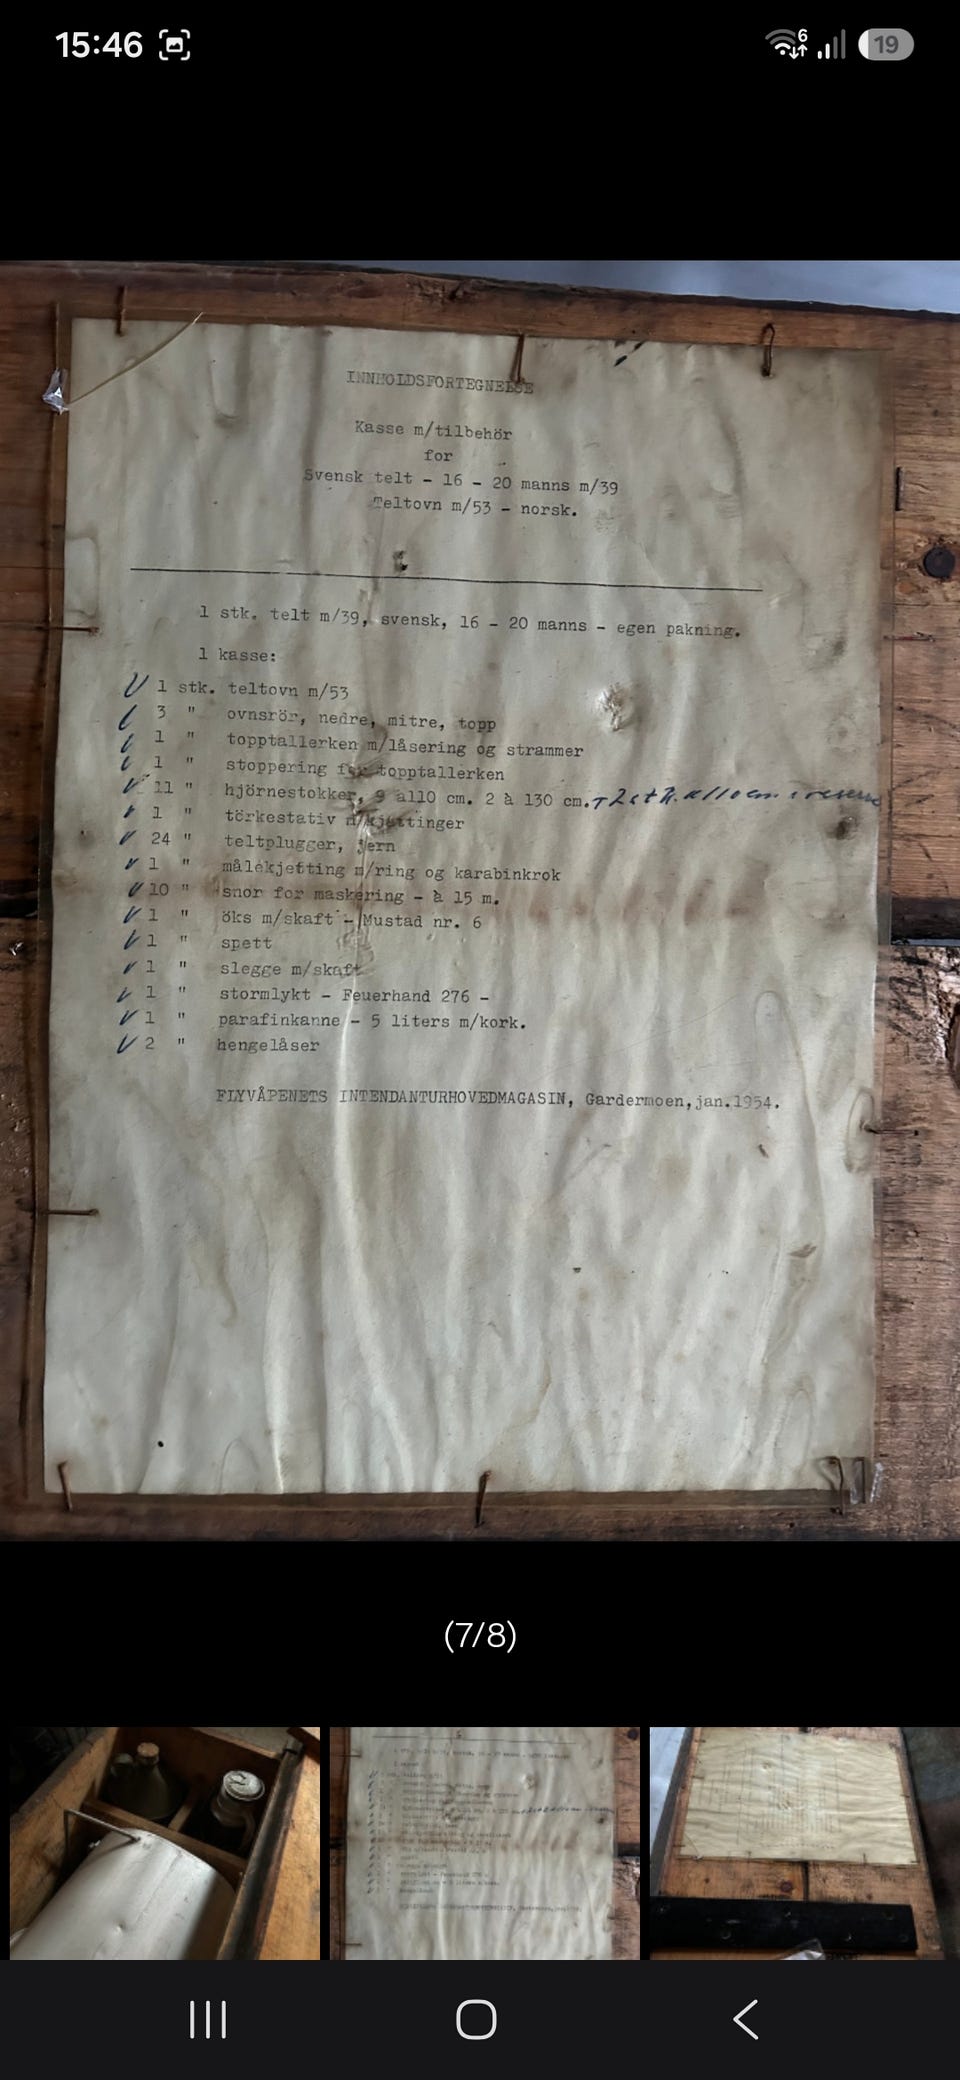 15:46
6
19
INNHOLDSFORTEGNELSE
Kasse m/tilbehör
for
Svensk telt - 16 - 20 manns m/39
Teltovn m/53 - norsk.
1 stk. telt m/39, svensk, 16 - 20 manns - egen pakning.
1 kasse:
1 stk. teltovn m/53
3 " ovnsrör, nedre, mitre, topp
1 " topptallerken m/låsering og strammer
1 " stoppering for topptallerken
11 " hjörnestokker, 9 à110 cm. 2 à 130 cm. + 2 stk. à 110 cm i reserve
1 " törkestativ m/kjettinger
24 " teltplugger, jern
1 " målekjetting m/ring og karabinkrok
10 " snor for maskering - à 15 m.
1 " öks m/skaft - Mustad nr. 6
1 " spett
1 " slegge m/skaft
1 " stormlykt - Feuerhand 276 -
1 " parafinkanne - 5 liters m/kork.
2 " hengelåser
FLYVÅPENETS INTENDANTURHOVEDMAGASIN, Gardermoen,jan.1954.
(7/8)